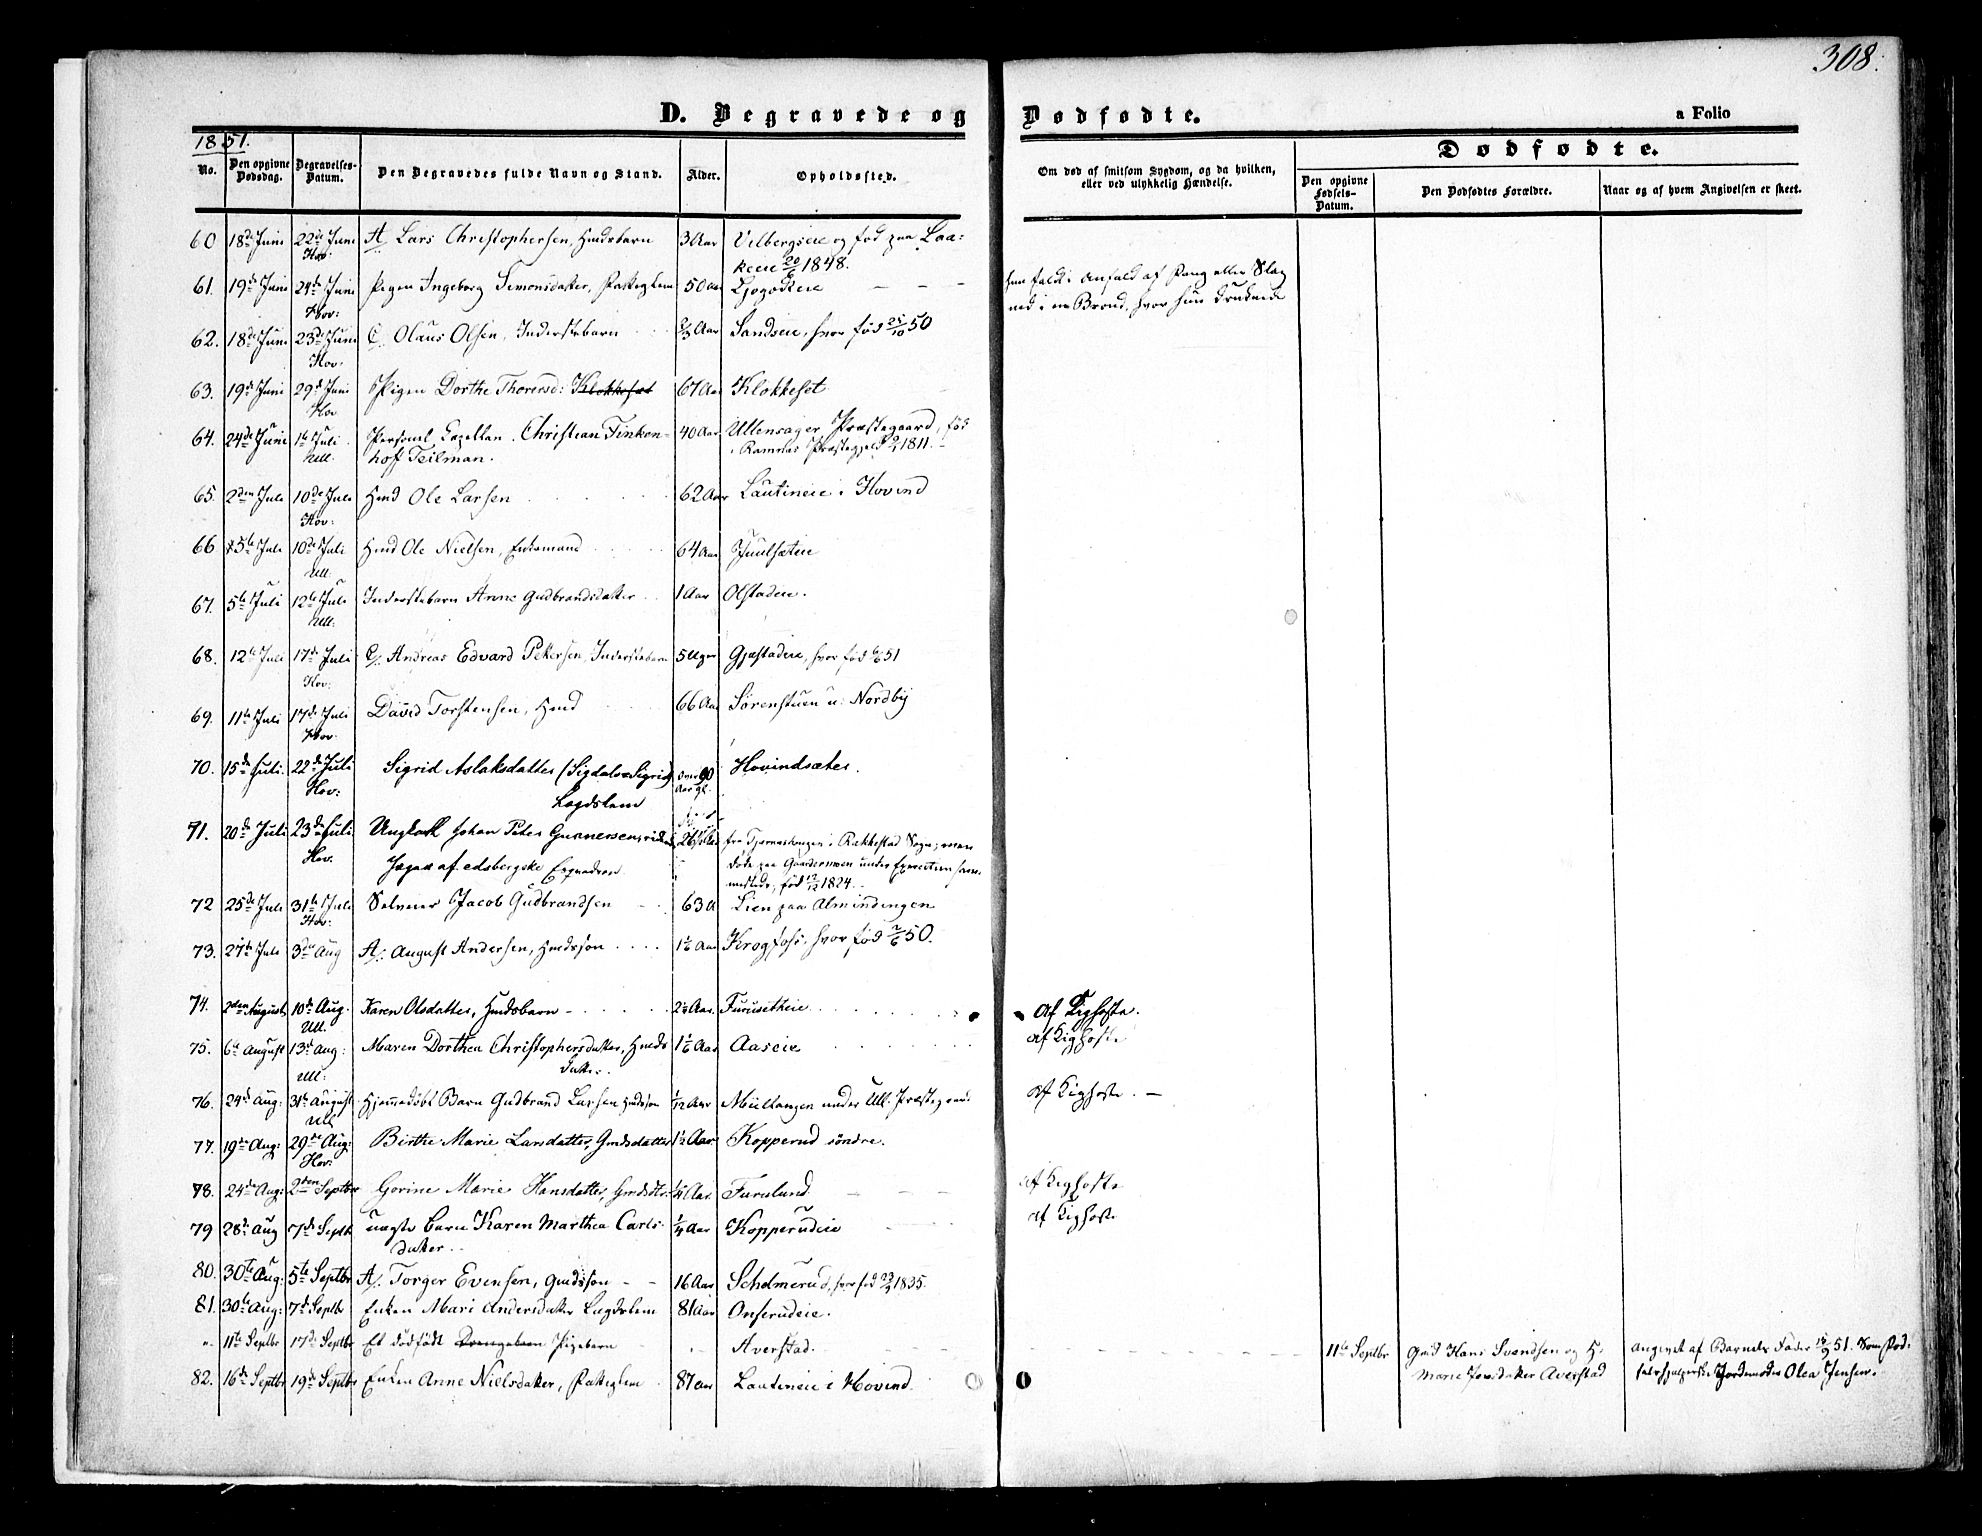 308.
D. Begravede og Dødfødte.
a Folio
1851.
No.
Den opgivne Dødsdag.
Begravelses-Datum.
Den Begravedes fulde Navn og Stand.
Alder.
Opholdssted.
Om død af smitsom Sygdom, og da hvilken, eller ved ulykkelig Hændelse.
Dødfødte.
Den opgivne Fødsels-Datum.
Den Dødfødtes Forældre.
Naar og af hvem Angivelsen er skeet.
60 18de Juni 22de Juni A. Lars Christophersen, Hmdsbarn 3 Aar Vilbergseie og fød paa Laa-
Hov: keeie 20/6 1848.
61. 19de Juni 24de Juni Pigen Ingeborg Simonsdatter, Fattiglem 50 Aar
Hov: ned i en Brønd, hvor hun druknede
62. 18de Juni 23de Juni C. Olaus Olsen, Inderstebarn 2/3 Aar Sandseie, hvor fød 25/10 50
Hov.
63. 19de Juni 29de Juni Pigen Dorthe Thoresd: Klokkeset 67 Aar Klokkeset
Hov
64. 24de Juni 1te Juli Personel Capellan Christian Finken- 40 Aar Ullensager Præstegaard, fød
Ull. hoff Teilman. i Ramnæs Præstegjeld 1811.
65. 2den Juli 10de Juli Hmd Ole Larsen 62 Aar Lautineie i Hovind
Hov:
66 5te Juli 10de Juli Hmd Ole Nielsen, Enkemand 64 Aar Juulsæteie
Ull.
67. 5te Juli 12te Juli Inderstebarn Anne Gudbrandsdatter 1 Aar Olstadeie.
Ull:
68. 12te Juli 17de Juli C. Andreas Edvard Petersen, Inderstebarn 5 Uger Gjestadeie, hvor fød 6/6 51
Hov:
69. 11te Juli 17de Juli David Torstensen, Hmd 66 Aar Sørenstuen u: Nordby
Hov:
70. 15de Juli. 22de Juli Sigrid Aslaksdatter (Sigdals Sigrid) over 90 Hovindsæter.
Hov: Lægdslem Aar gl.
71. 20de Juli 23de Juli Ungkarl Johan Peter Gunnersen, 26 Aar Rakkestad Sogn;
Hov. Jæger af edsbergske Esqvadron døde paa Gardermoen under Exercitien
fød 12/12 1824.
72 25de Juli 31te Juli Selveier Jacob Gudbrandsen 63 A Lien paa Almindingen
Hov:
73. 27de Juli 3die Aug A. August Andersen, Hmdssøn 1 1/6 Aar Krogfoss, hvor fød 2/6 50.
74. 2den August 10de Aug. Karen Olsdatter, Hmdsbarn Aar. Furusetheie af Kighoste.
Ull.
75. 6te August 13de Aug: Maren Dorthea Christophersdatter, Hmds 1 1/6 Aar Aaseie af Kighoste
Ull: datter.
76. 24de Aug: 31te August Hjemmedøbt Barn Gudbrand Larsen Hmdssøn 1/12 Aar under Ull. Præstegaard af Kighoste.
Ull
77. 19de Aug: 29de Aug: Birthe Marie Larsdatter, Gmdsdatter 1 1/2 Aar Kopperud søndre.
Hov:
78. 24de Aug: 2den Septbr Gorine Marie Hansdatter, Gmdsdtr: 1/4 Aar Furulund af Kighoste
79 28de Aug 7de Septb uægte Barn Karen Marthea Carls- 1/4 Aar Kopperudeie af Kighoste
datter.
80. 30te Aug: 5te Septbr A. Torger Evensen, Gmdssøn 16 Aar Schelmerud, hvor fød 1835.
81. 30te Aug: 7de Septbr Enken Mari Andersdatter Lægdslem 81 Aar Onserudeie.
" 11te Septbr 17de Septbr Et dødfødt Drengebarn Pigebarn Averstad. 11te Septbr Gmd Hans Svendsen og H. angivet af Barnets Fader 51.
Marie Averstad Jordemoder Olea Jensen.
82. 16de Septbr 19de Septbr Enken Anne Nielsdatter, Fattiglem 87 Aar Lautineie i Hovind.